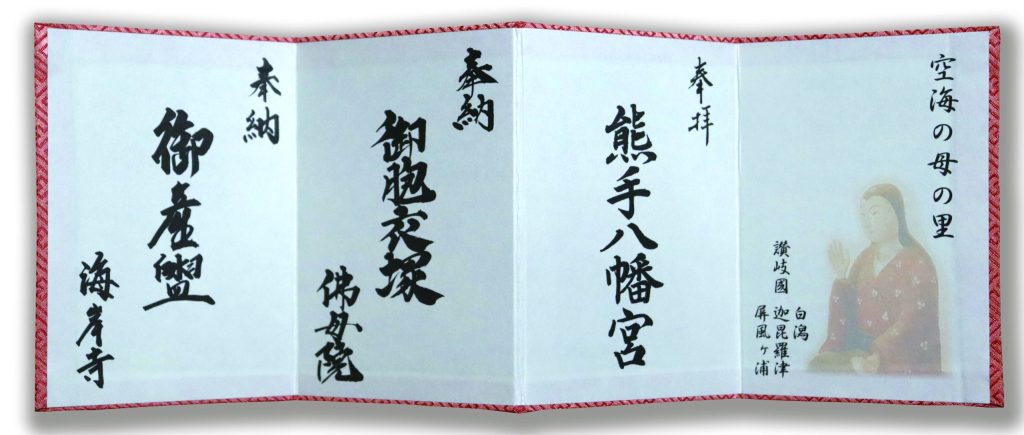 空海の母の里
讃岐國
白潟
迦毘羅津
屏風ヶ浦
奉拝
熊手八幡宮
奉納
御胞衣塚
佛母院
奉納
御産盥
海岸寺